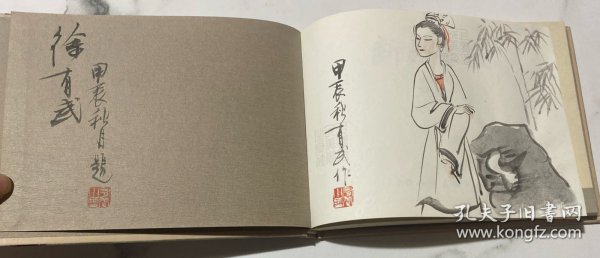 徐有武
甲辰秋月题
甲辰秋有武作
孔夫子旧书网
www.kongfz.com